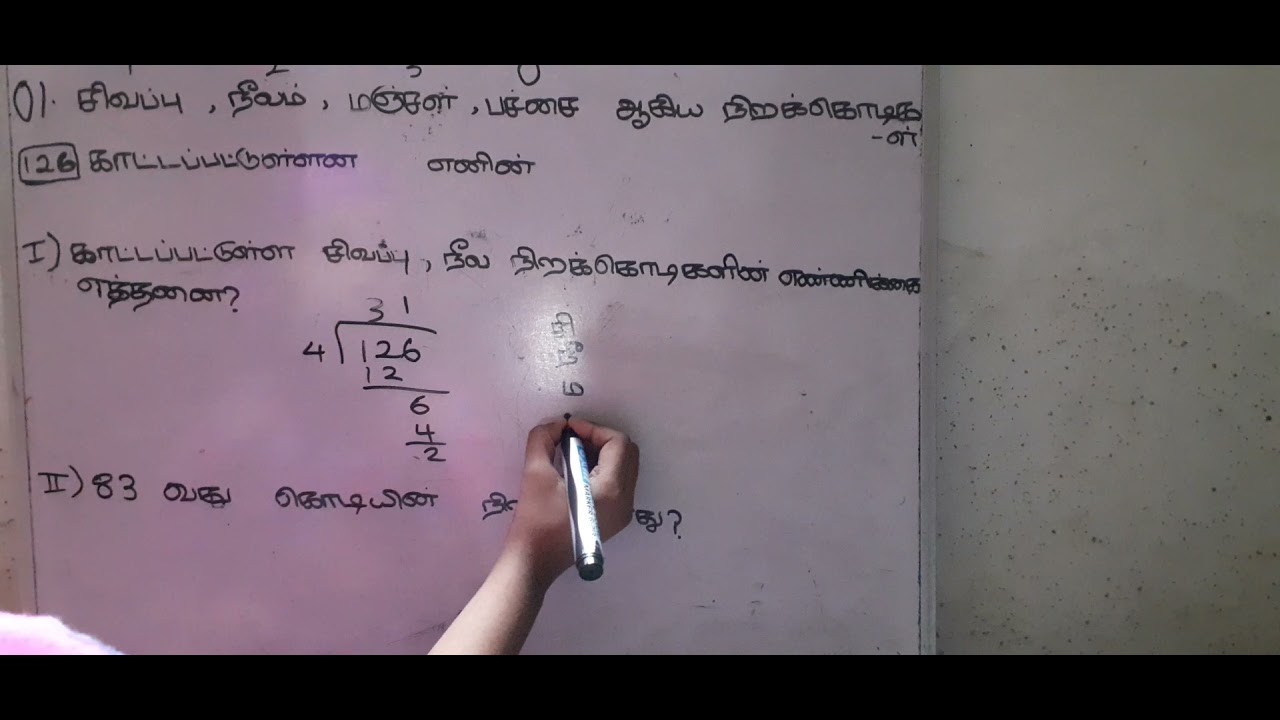 01. சிவப்பு , நீலம் , மஞ்சள் , பச்சை ஆகிய நிறக்கொடிக
-ள்
126 காட்டப்பட்டுள்ளன எனின்
I) காட்டப்பட்டுள்ளா சிவப்பு , நீல நிறக்கொடிகளின் எண்ணிக்கை
எத்தனை?
31
4 126
12
6
4
2
சி
நீ
ம
II) 83 வது கொடியின்